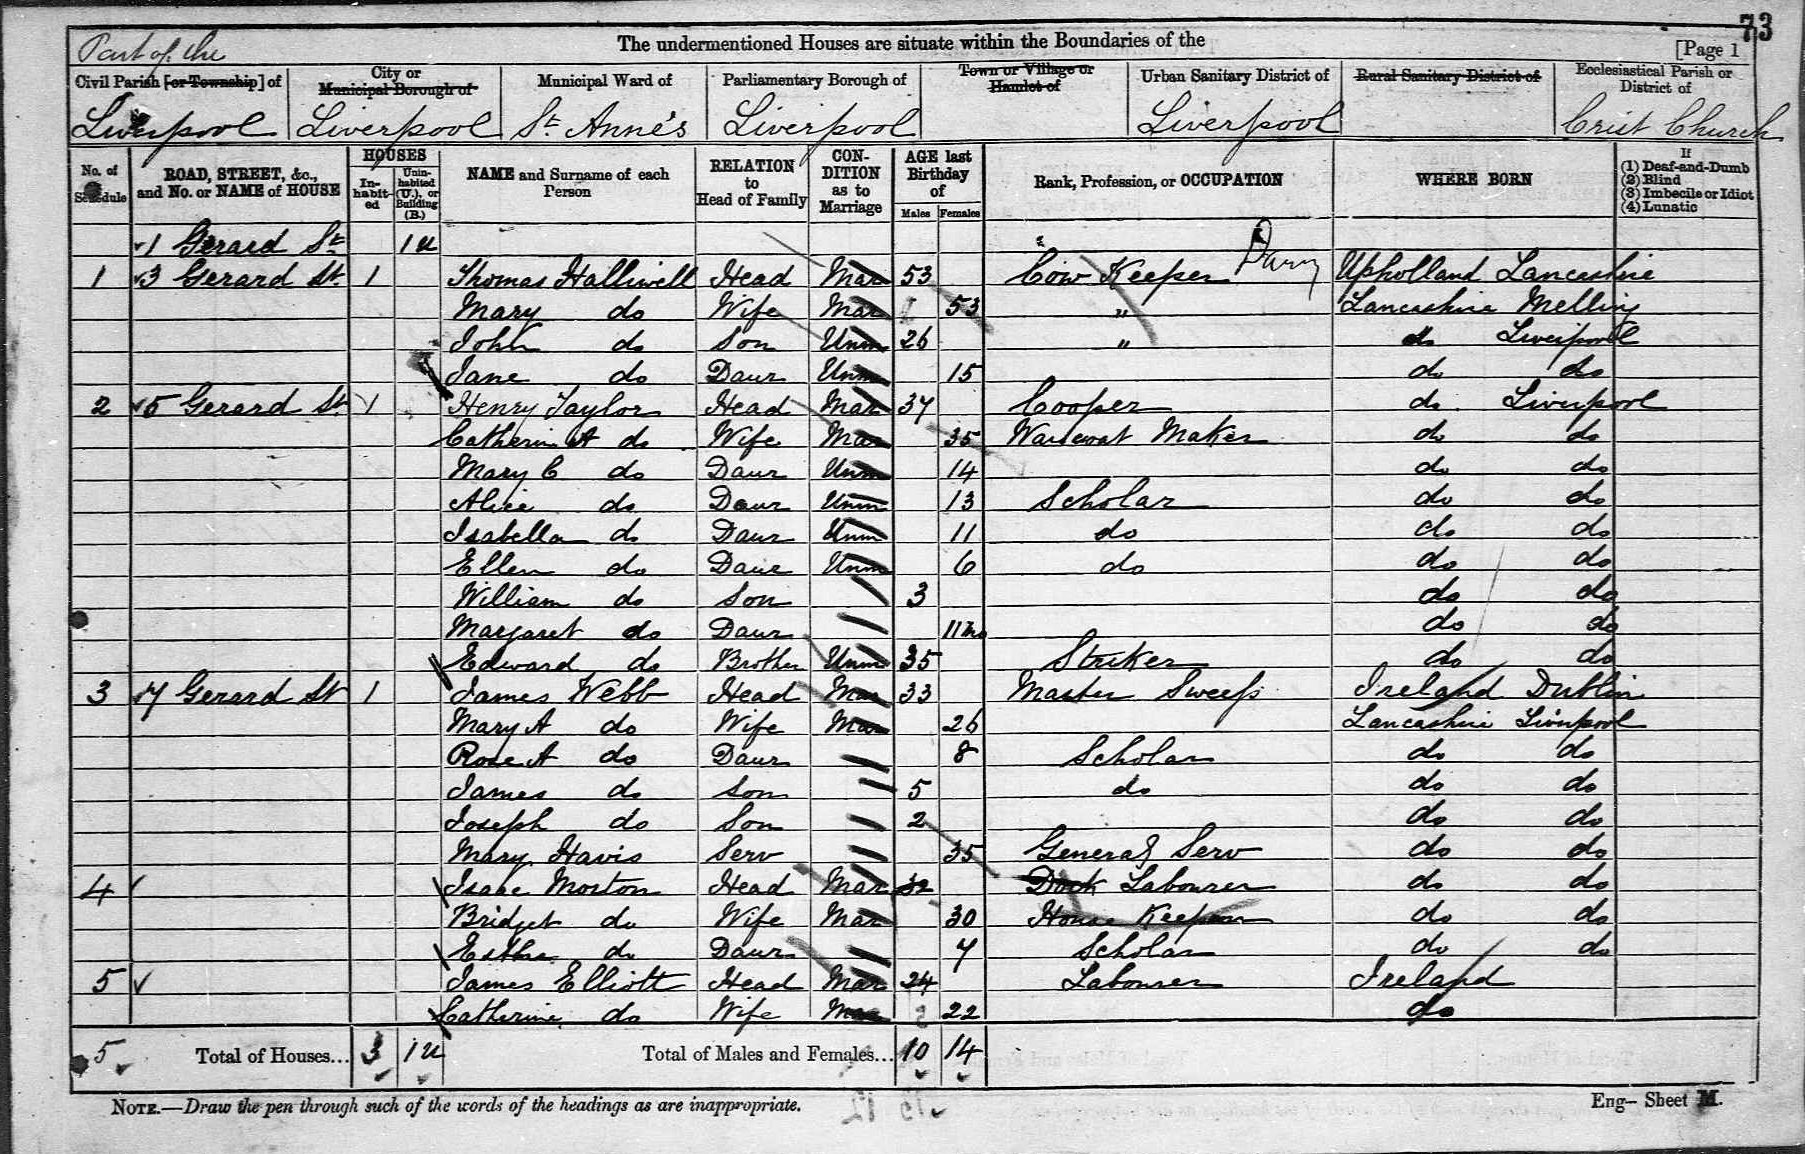 73
Part of the The undermentioned Houses are situate within the Boundaries of the [Page 1
Civil Parish [or Township] of City or Municipal Borough of Municipal Ward of Parliamentary Borough of Town or Village or Hamlet of Urban Sanitary District of Rural Sanitary District of Ecclesiastical Parish or District of
Liverpool Liverpool St. Anne's Liverpool Liverpool Crist Church
No. of Schedule ROAD, STREET, &c., and No. or NAME of HOUSE HOUSES In-habit-ed Unin-habited (U.), or Building (B.) NAME and Surname of each Person RELATION to Head of Family CON-DITION as to Marriage AGE last Birthday of Males Females Rank, Profession, or OCCUPATION WHERE BORN If (1) Deaf-and-Dumb (2) Blind (3) Imbecile or Idiot (4) Lunatic
1 Gerard St. 1 u
1 3 Gerard St. 1 Thomas Halliwell Head Mar 53 Cow Keeper Upholland Lancashire
Mary do Wife Mar 53 " Lancashire Melling
John do Son Unm 26 " do Liverpool
Jane do Daur Unm 15 do do
2 5 Gerard St. 1 Henry Taylor Head Mar 37 Cooper do Liverpool
Catherin A do Wife Mar 35 Waiscoat Maker do do
Mary C do Daur Unm 14 do do
Alice do Daur Unm 13 Scholar do do
Isabella do Daur Unm 11 do do do
Ellen do Daur Unm 6 do do do
William do Son 3 do do
Margaret do Daur 11 mo do do
Edward do Brother Unm 35 Striker do do
3 7 Gerard St 1 James Webb Head Mar 33 Master Sweep Ireland Dublin
Mary A do Wife Mar 26 Lancashire Liverpool
Rose A do Daur 8 Scholar do do
James do Son 5 do do do
Joseph do Son 2 do do
Mary Havis Serv 35 General Serv do do
4 Isaac Morton Head Mar 32 Dock Labourer do do
Bridget do Wife Mar 30 House Keeper do do
Esther do Daur 7 Scholar do do
5 James Elliott Head Mar 24 Labourer Ireland
Catherine do Wife Mar 22 do
5 Total of Houses... 3 1 u Total of Males and Females... 10 14
NOTE.—Draw the pen through such of the words of the headings as are inappropriate. Eng– Sheet M.